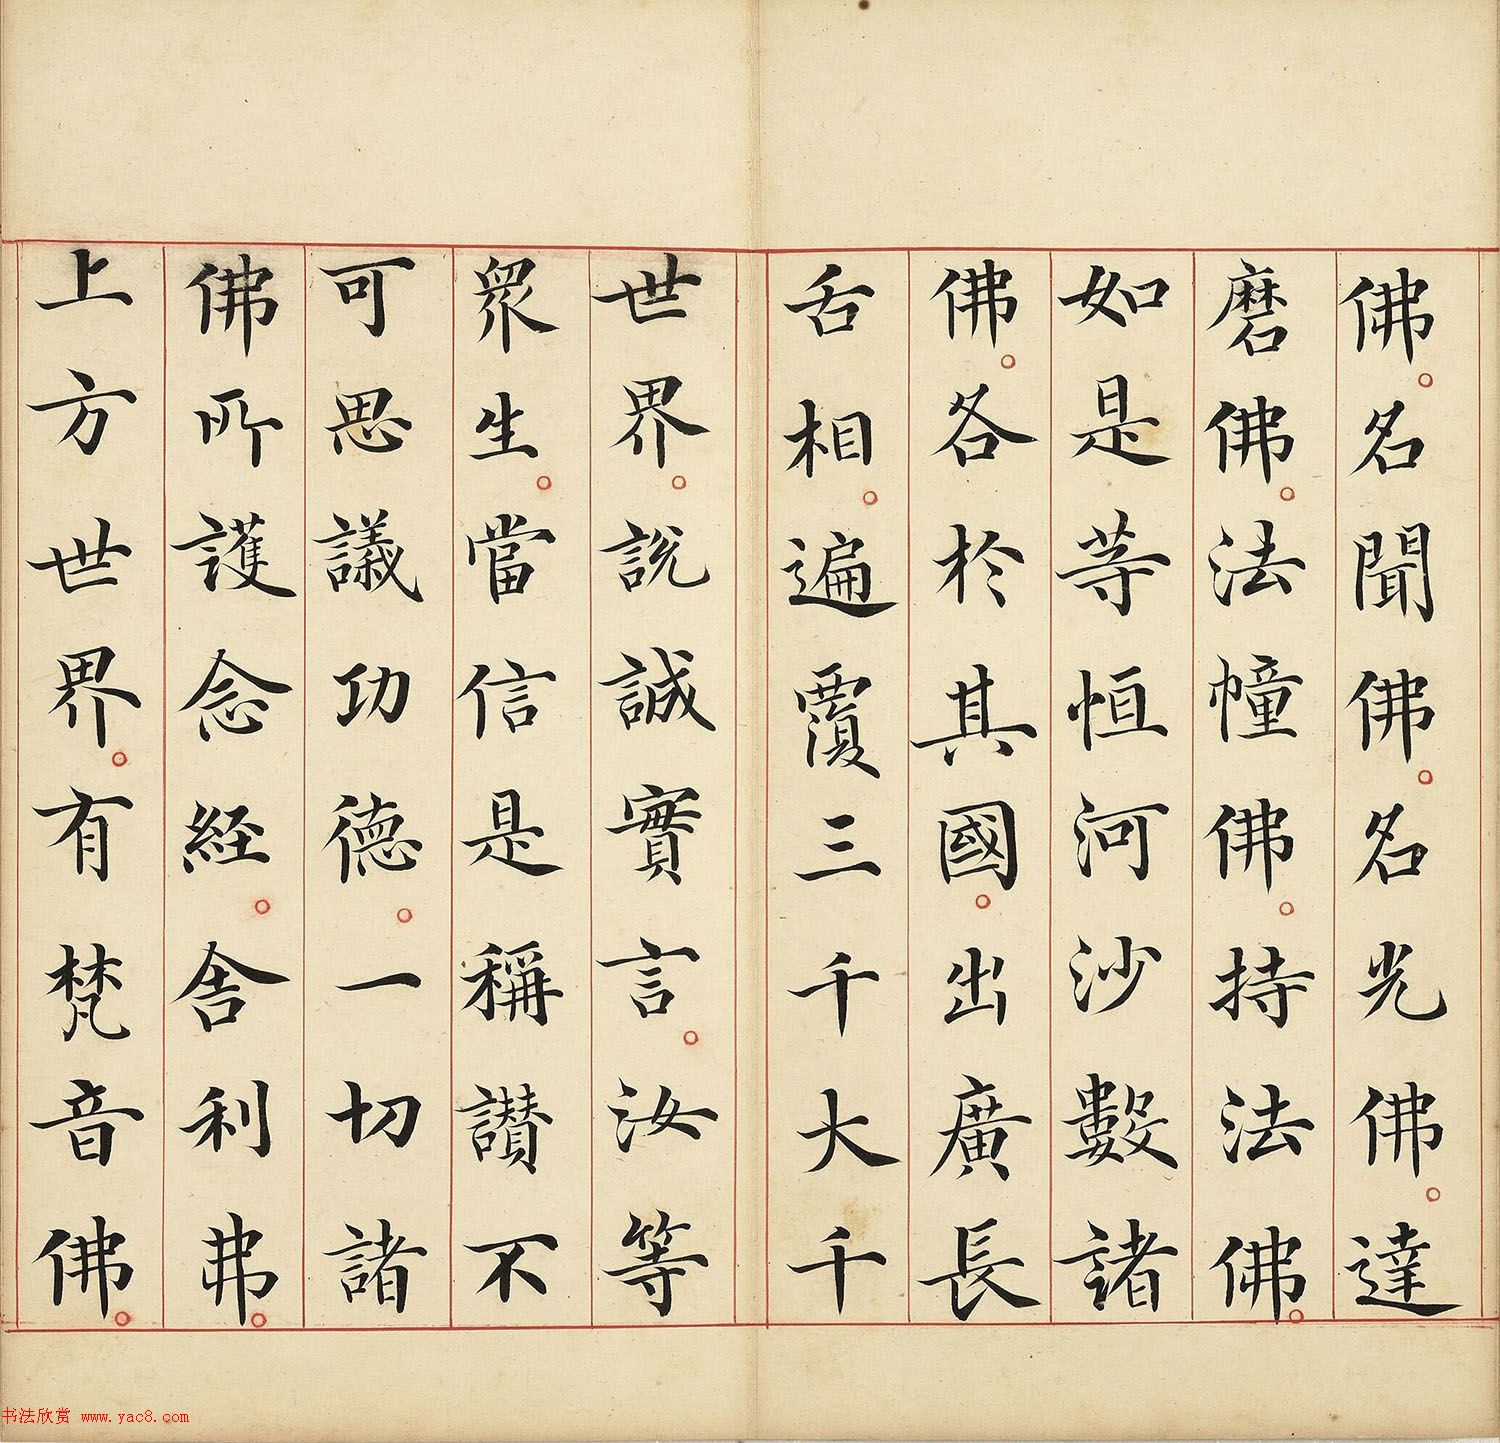 佛。名聞佛。名光佛。達
磨佛。法幢佛。持法佛。
如是等恒河沙數諸
佛。各於其國。出廣長
舌相。遍覆三千大千
世界。說誠實言。汝等
眾生。當信是稱讚不
可思議功德。一切諸
佛所護念経。舍利弗。
上方世界。有梵音佛。
书法欣赏 www.yac8.com